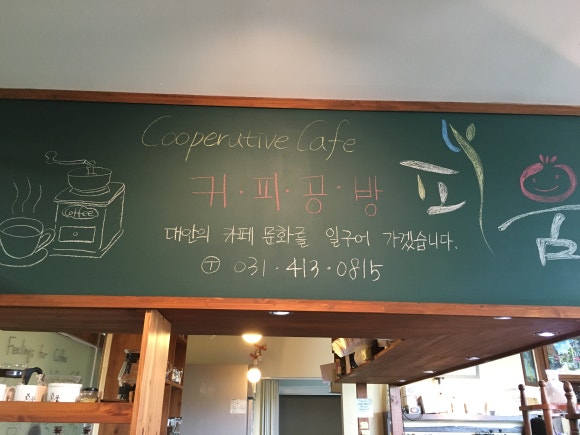 Cooperative Cafe
커·피·공·방
대안의 카페 문화를 일구어 가겠습니다.
Ⓣ 031·413·0815
Coffee
Feelings for Coffee